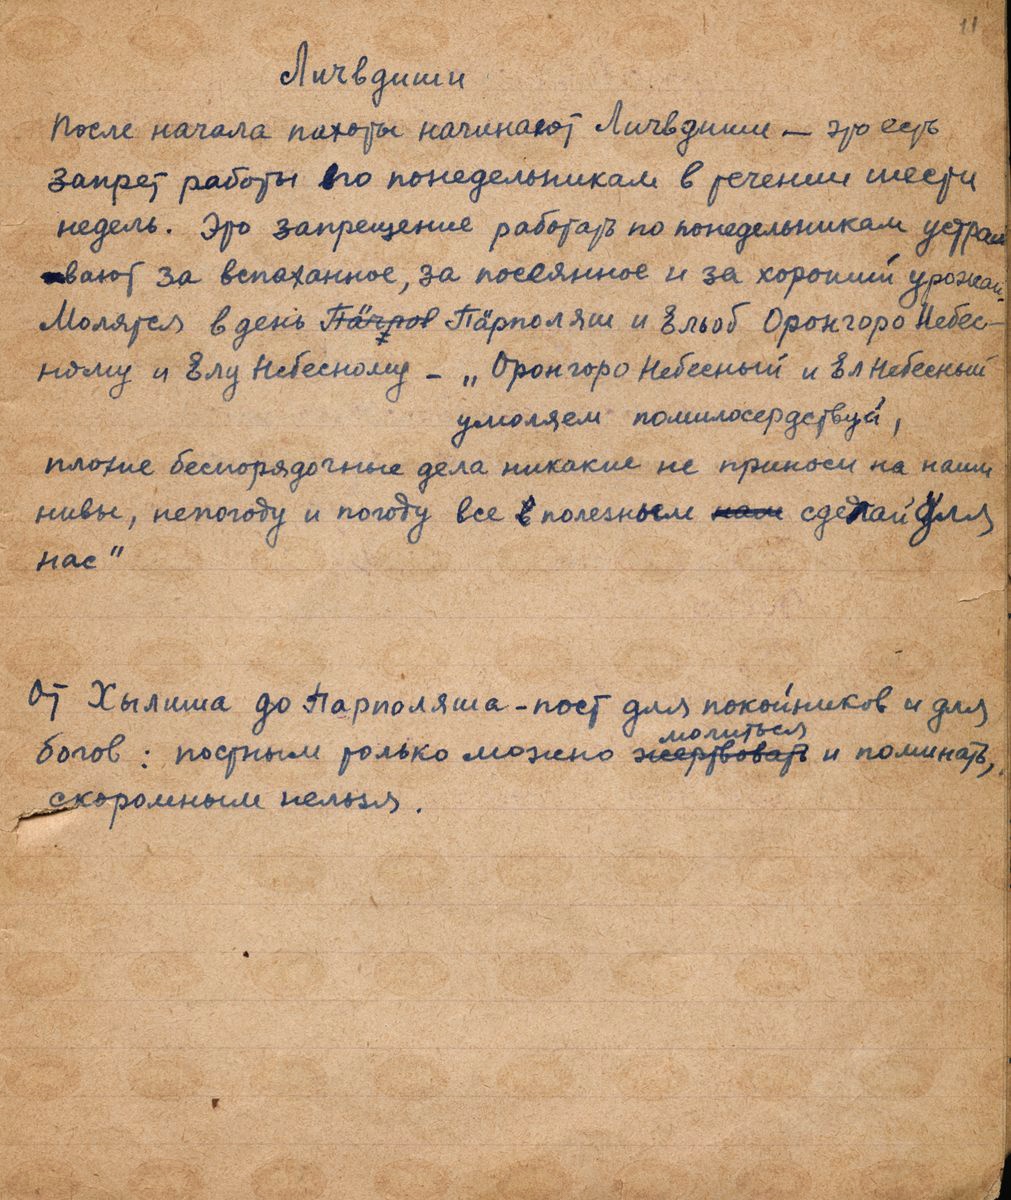 11
Личвдиши
После начала пахоты начинают Личвдиши — это есть
запрет работы по понедельникам в течении шести
недель. Это запрещение работать по понедельникам устраи
вают за вспаханное, за посеянное и за хороший урожай.
Молятся в день Пäчров Пäрполяш и Ельоб Оронгоро Небес-
ному и Елу Небесному — „Оронгоро Небесный и Ел Небесный
умоляем помилосердствуй,
плохие беспорядочные дела никакие не приноси на наши
нивы, непогоду и погоду все полезным нам сделай для
нас"
От Хылиша до Парполяша - пост для покойников и для
молиться
богов: постным только можно жертвовать и поминать,
скоромным нельзя.